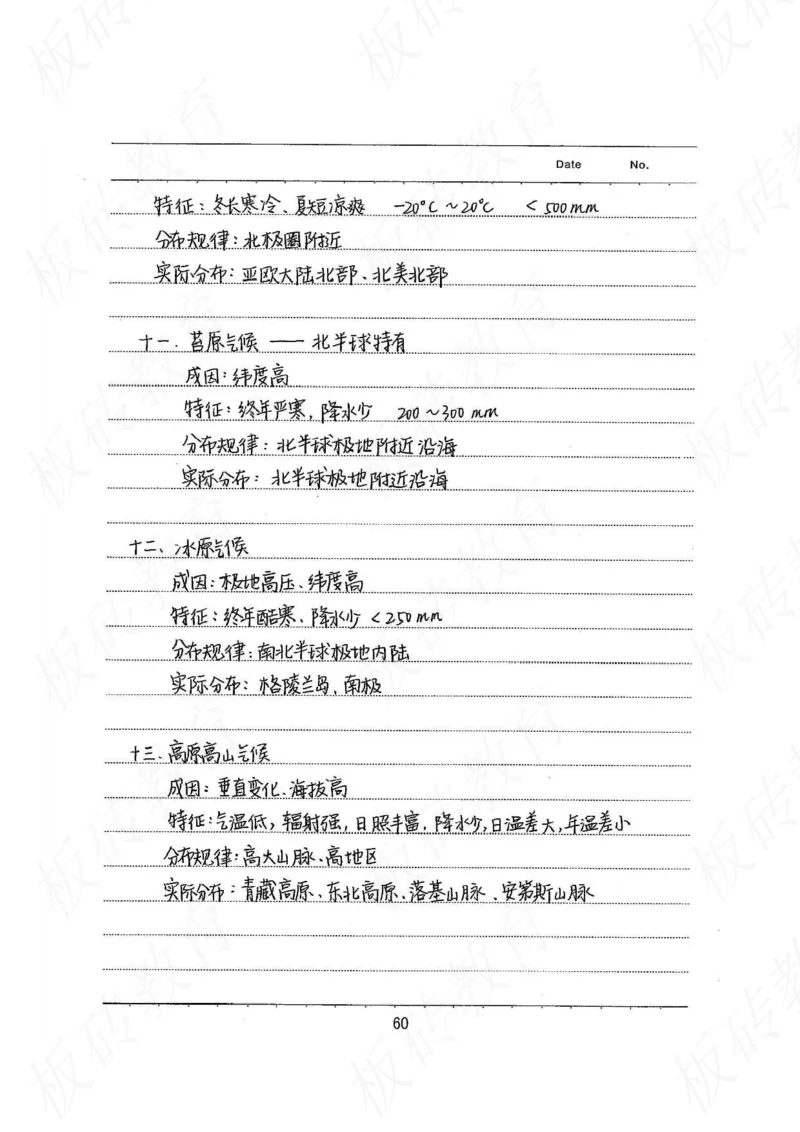 Date No.
特征：冬长寒冷、夏短凉爽 -20℃～20℃ ＜500mm
分布规律：北极圈附近
实际分布：亚欧大陆北部、北美北部
十一、苔原气候 —— 北半球特有
成因：纬度高
特征：终年严寒，降水少 200～300 mm
分布规律：北半球极地附近沿海
实际分布：北半球极地附近沿海
十二、冰原气候
成因：极地高压、纬度高
特征：终年酷寒、降水少 ＜250mm
分布规律：南北半球极地内陆
实际分布：格陵兰岛、南极
十三、高原高山气候
成因：垂直变化、海拔高
特征：气温低，辐射强，日照丰富，降水少，日温差大，年温差小
分布规律：高大山脉、高地区
实际分布：青藏高原、东北高原、落基山脉、安第斯山脉
60
板砖教育